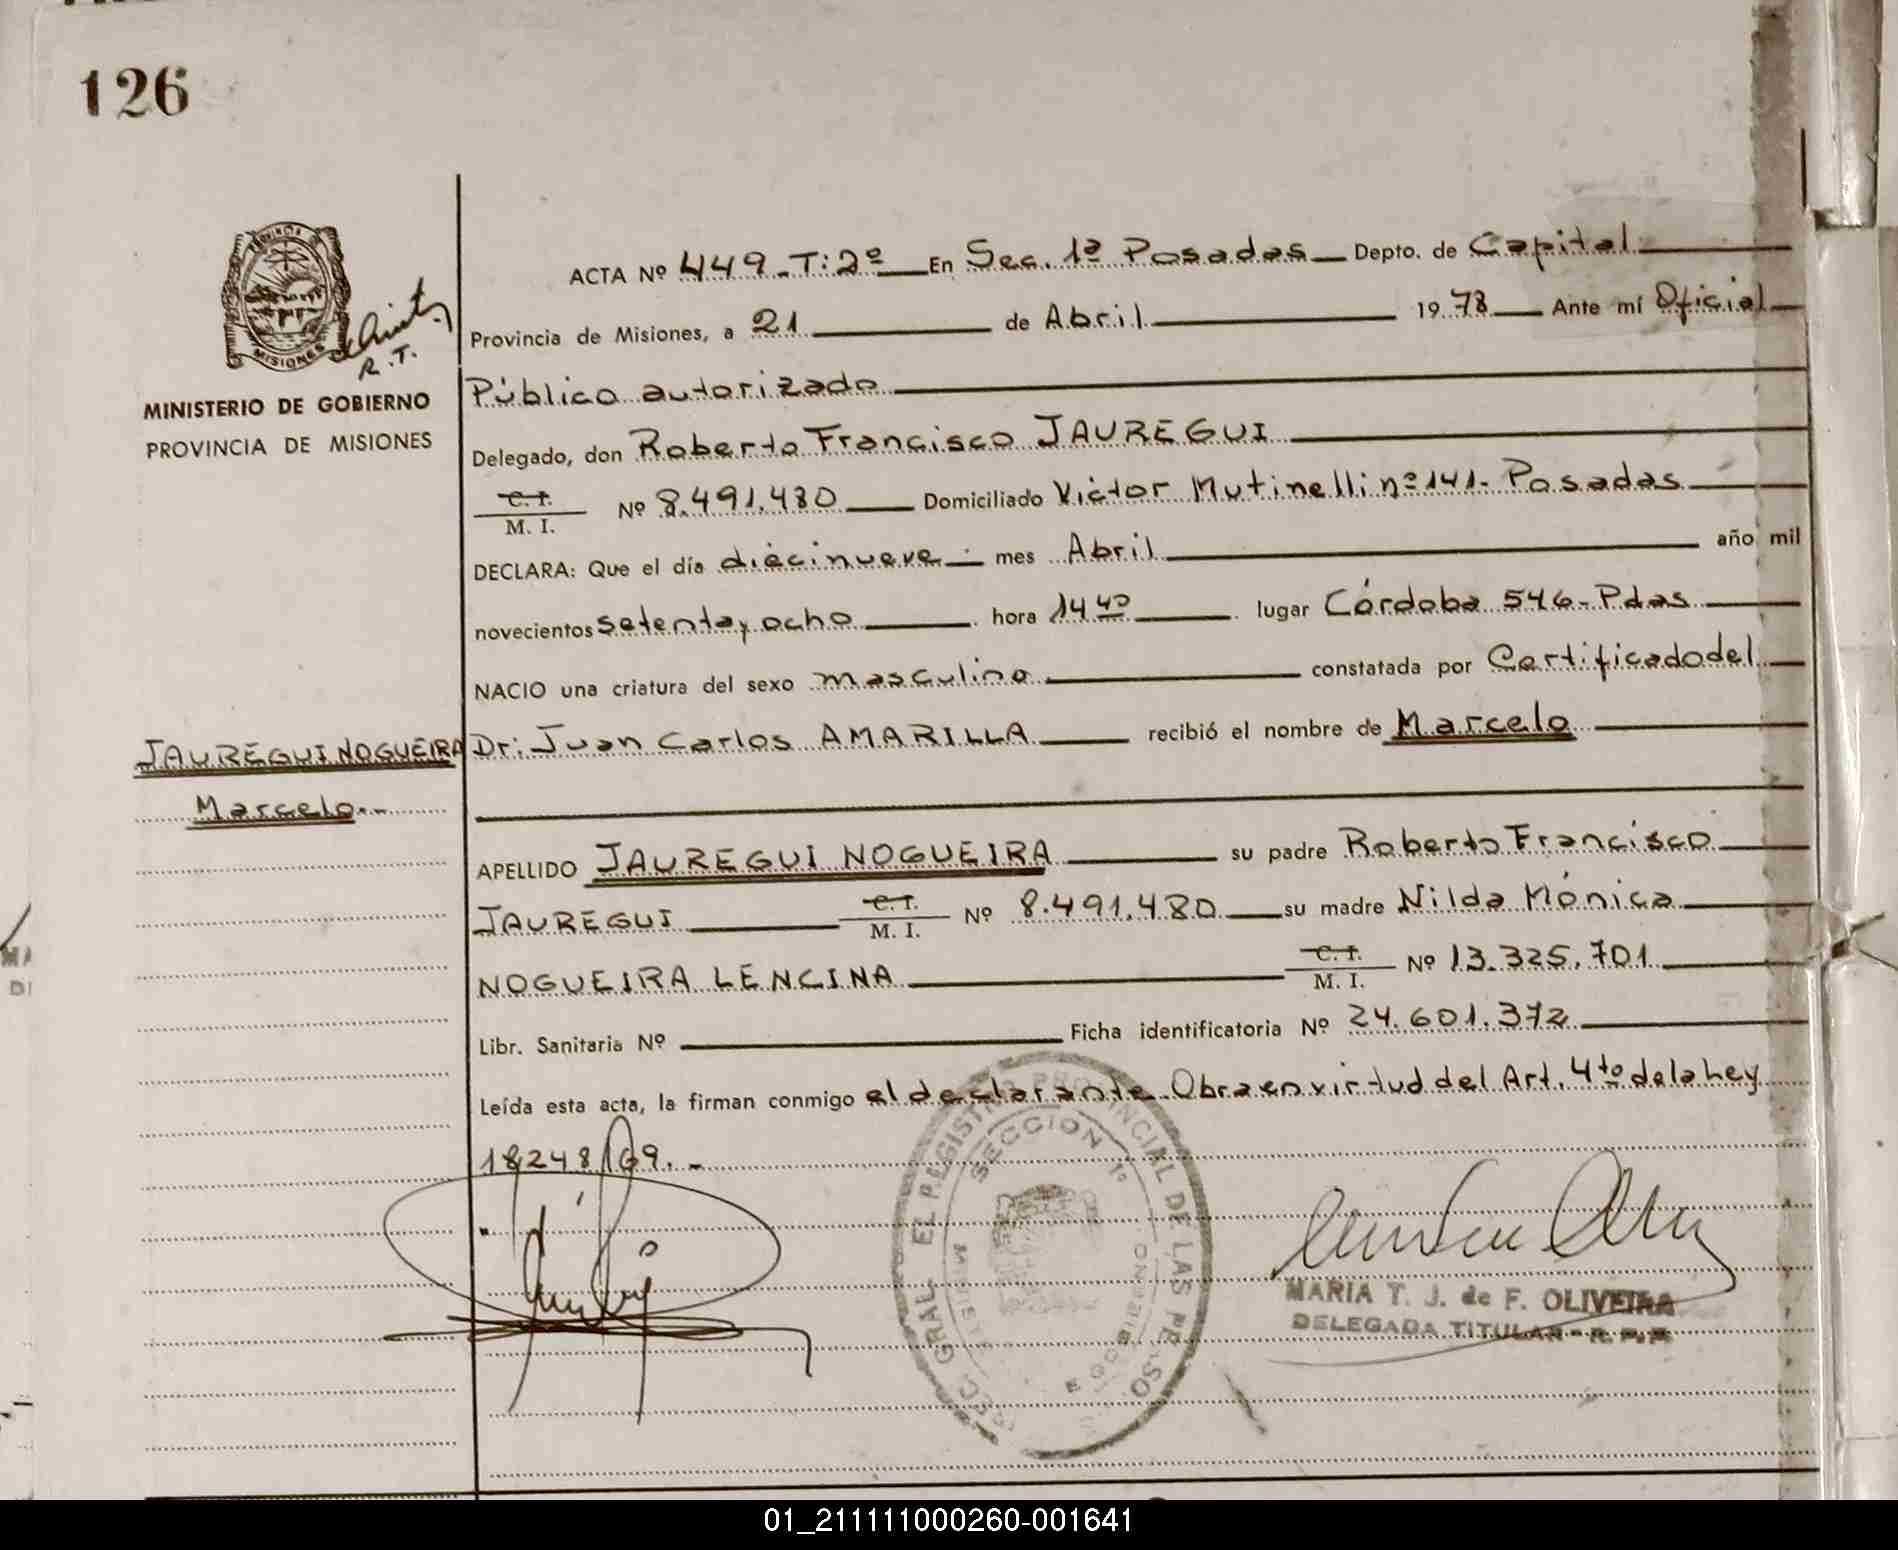 126
PROVINCIA DE
MISIONES
R.T.
MINISTERIO DE GOBIERNO
PROVINCIA DE MISIONES
JAUREGUI NOGUEIRA
Marcelo.--
ACTA Nº 449-T:2º En Sec. 1ª Posadas Depto. de Capital
Provincia de Misiones, a 21 de Abril 1978 Ante mí Oficial
Público autorizado
Delegado, don Roberto Francisco JAUREGUI
C. I. / M. I. Nº 8.491.480 Domiciliado Victor Mutinelli nº 141- Posadas
DECLARA: Que el día diecinueve - mes Abril año mil
novecientos setenta y ocho hora 14 40 lugar Córdoba 546- Pdas
NACIO una criatura del sexo masculino constatada por Certificado del
Dr: Juan Carlos AMARILLA recibió el nombre de Marcelo
APELLIDO JAUREGUI NOGUEIRA su padre Roberto Francisco
JAUREGUI C. I. / M. I. Nº 8.491.480 su madre Nilda Mónica
NOGUEIRA LENCINA C. I. / M. I. Nº 13.325.701
Libr. Sanitaria Nº Ficha identificatoria Nº 24.601.372
Leída esta acta, la firman conmigo el declarante. Obra en virtud del Art. 4to de la Ley
18248/69.-
GRAL. EL REGISTRO PROVINCIAL DE LAS
SECCION 1º
MARIA T. J. de F. OLIVEIRA
DELEGADA TITULAR - R. P. P.
01_211111000260-001641